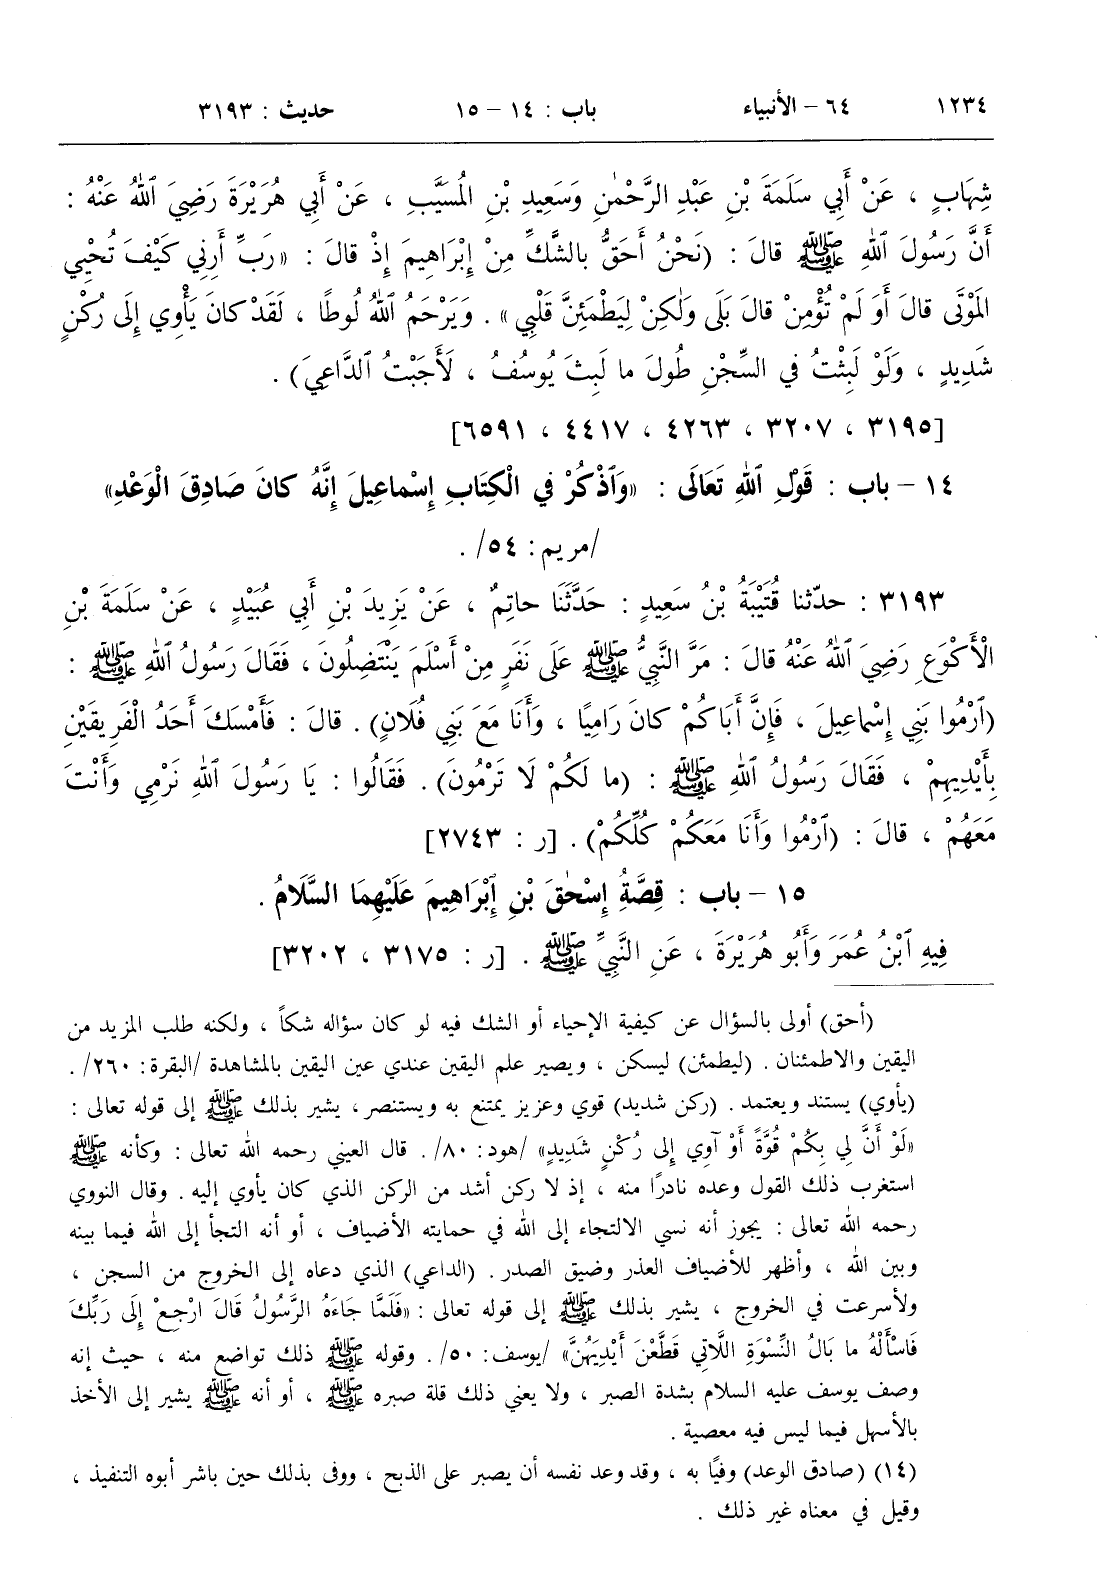 ١٢٣٤ ٦٤ – الأنبياء باب : ١٤ – ١٥ حديث : ٣١٩٣
شِهَابٍ ، عَنْ أَبِي سَلَمَةَ بْنِ عَبْدِ الرَّحْمٰنِ وَسَعِيدِ بْنِ المُسَيَّبِ ، عَنْ أَبِي هُرَيْرَةَ رَضِيَ ٱللهُ عَنْهُ :
أَنَّ رَسُولَ ٱللهِ ﷺ قالَ : (نَحْنُ أَحَقُّ بالشَّكِّ مِنْ إِبْرَاهِيمَ إِذْ قالَ : «رَبِّ أَرِنِي كَيْفَ تُحْيِي
المَوْتَى قالَ أَوَ لَمْ تُؤْمِنْ قالَ بَلَى وَلٰكِنْ لِيَطْمَئِنَّ قَلْبِي» . وَيَرْحَمُ ٱللهُ لُوطًا ، لَقَدْ كانَ يَأْوِي إِلَى رُكْنٍ
شَدِيدٍ ، وَلَوْ لَبِثْتُ في السِّجْنِ طُولَ ما لَبِثَ يُوسُفُ ، لَأَجَبْتُ ٱلدَّاعِيَ) .
[٣١٩٥ ، ٣٢٠٧ ، ٤٢٦٣ ، ٤٤١٧ ، ٦٥٩١]
١٤ – باب : قَوْلِ ٱللهِ تَعَالَى : «وَٱذْكُرْ في الْكِتَابِ إِسْماعِيلَ إِنَّهُ كانَ صَادِقَ الْوَعْدِ»
/مريم : ٥٤/ .
٣١٩٣ : حدّثنا قُتَيْبَةُ بْنُ سَعِيدٍ : حَدَّثَنَا حاتِمٌ ، عَنْ يَزِيدَ بْنِ أَبِي عُبَيْدٍ ، عَنْ سَلَمَةَ بْنِ
الْأَكْوَعِ رَضِيَ ٱللهُ عَنْهُ قالَ : مَرَّ النَّبِيُّ ﷺ عَلَى نَفَرٍ مِنْ أَسْلَمَ يَنْتَضِلُونَ ، فَقَالَ رَسُولُ ٱللهِ ﷺ :
(ٱرْمُوا بَنِي إِسْماعِيلَ ، فَإِنَّ أَبَاكُمْ كانَ رَامِيًا ، وَأَنَا مَعَ بَنِي فُلَانٍ) . قالَ : فَأَمْسَكَ أَحَدُ الْفَرِيقَيْنِ
بِأَيْدِيهِمْ ، فَقَالَ رَسُولُ ٱللهِ ﷺ : (ما لَكُمْ لَا تَرْمُونَ) . فَقَالُوا : يَا رَسُولَ ٱللهِ نَرْمِي وَأَنْتَ
مَعَهُمْ ، قالَ : (ٱرْمُوا وَأَنَا مَعَكُمْ كُلِّكُمْ) . [ر : ٢٧٤٣]
١٥ – باب : قِصَّةُ إِسْحٰقَ بْنِ إِبْرَاهِيمَ عَلَيْهِمَا السَّلَامُ .
فِيهِ ٱبْنُ عُمَرَ وَأَبُو هُرَيْرَةَ ، عَنِ النَّبِيِّ ﷺ . [ر : ٣١٧٥ ، ٣٢٠٢]
(أحق) أولى بالسؤال عن كيفية الإحياء أو الشك فيه لو كان سؤاله شكاً ، ولكنه طلب المزيد من
اليقين والاطمئنان . (ليطمئن) ليسكن ، ويصير علم اليقين عندي عين اليقين بالمشاهدة /البقرة : ٢٦٠/ .
(يأوي) يستند ويعتمد . (ركن شديد) قوي وعزيز يمتنع به ويستنصر ، يشير بذلك ﷺ إلى قوله تعالى :
«لَوْ أَنَّ لِي بِكُمْ قُوَّةً أَوْ آوِي إِلَى رُكْنٍ شَدِيدٍ» /هود : ٨٠/ . قال العيني رحمه الله تعالى : وكأنه ﷺ
استغرب ذلك القول وعده نادرًا منه ، إذ لا ركن أشد من الركن الذي كان يأوي إليه . وقال النووي
رحمه الله تعالى : يجوز أنه نسي الالتجاء إلى الله في حمايته الأضياف ، أو أنه التجأ إلى الله فيما بينه
وبين الله ، وأظهر للأضياف العذر وضيق الصدر . (الداعي) الذي دعاه إلى الخروج من السجن ،
ولأسرعت في الخروج ، يشير بذلك ﷺ إلى قوله تعالى : «فَلَمَّا جَاءَهُ الرَّسُولُ قَالَ ارْجِعْ إِلَى رَبِّكَ
فَاسْأَلْهُ ما بَالُ النِّسْوَةِ اللَّاتِي قَطَّعْنَ أَيْدِيَهُنَّ» /يوسف : ٥٠/ . وقوله ﷺ ذلك تواضع منه ، حيث إنه
وصف يوسف عليه السلام بشدة الصبر ، ولا يعني ذلك قلة صبره ﷺ ، أو أنه ﷺ يشير إلى الأخذ
بالأسهل فيما ليس فيه معصية .
(١٤) (صادق الوعد) وفيًا به ، وقد وعد نفسه أن يصبر على الذبح ، ووفى بذلك حين باشر أبوه التنفيذ ،
وقيل في معناه غير ذلك .